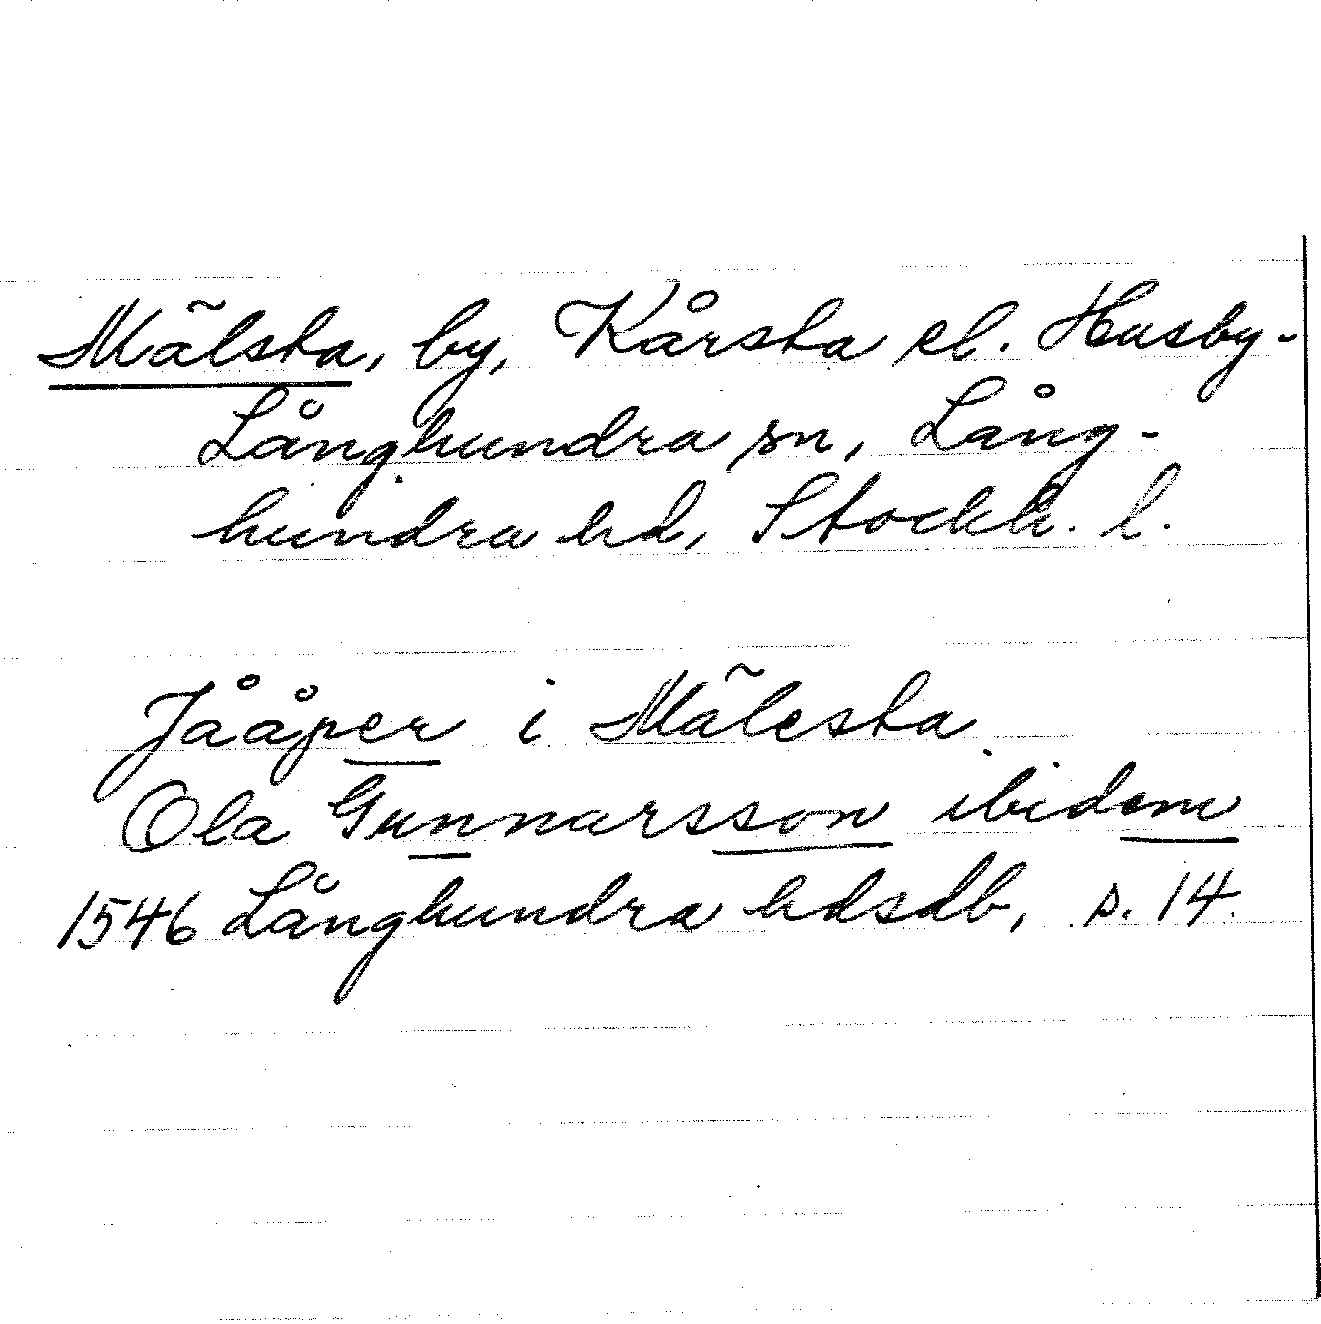 Mälsta, by, Kårsta el. Husby-
Långhundra sn, Lång-
hundra hd, Stockh. l.
Jååper i Mälesta
Ola Gunnarsson ibidem
1546 Långhundra hdsdb, s. 14.